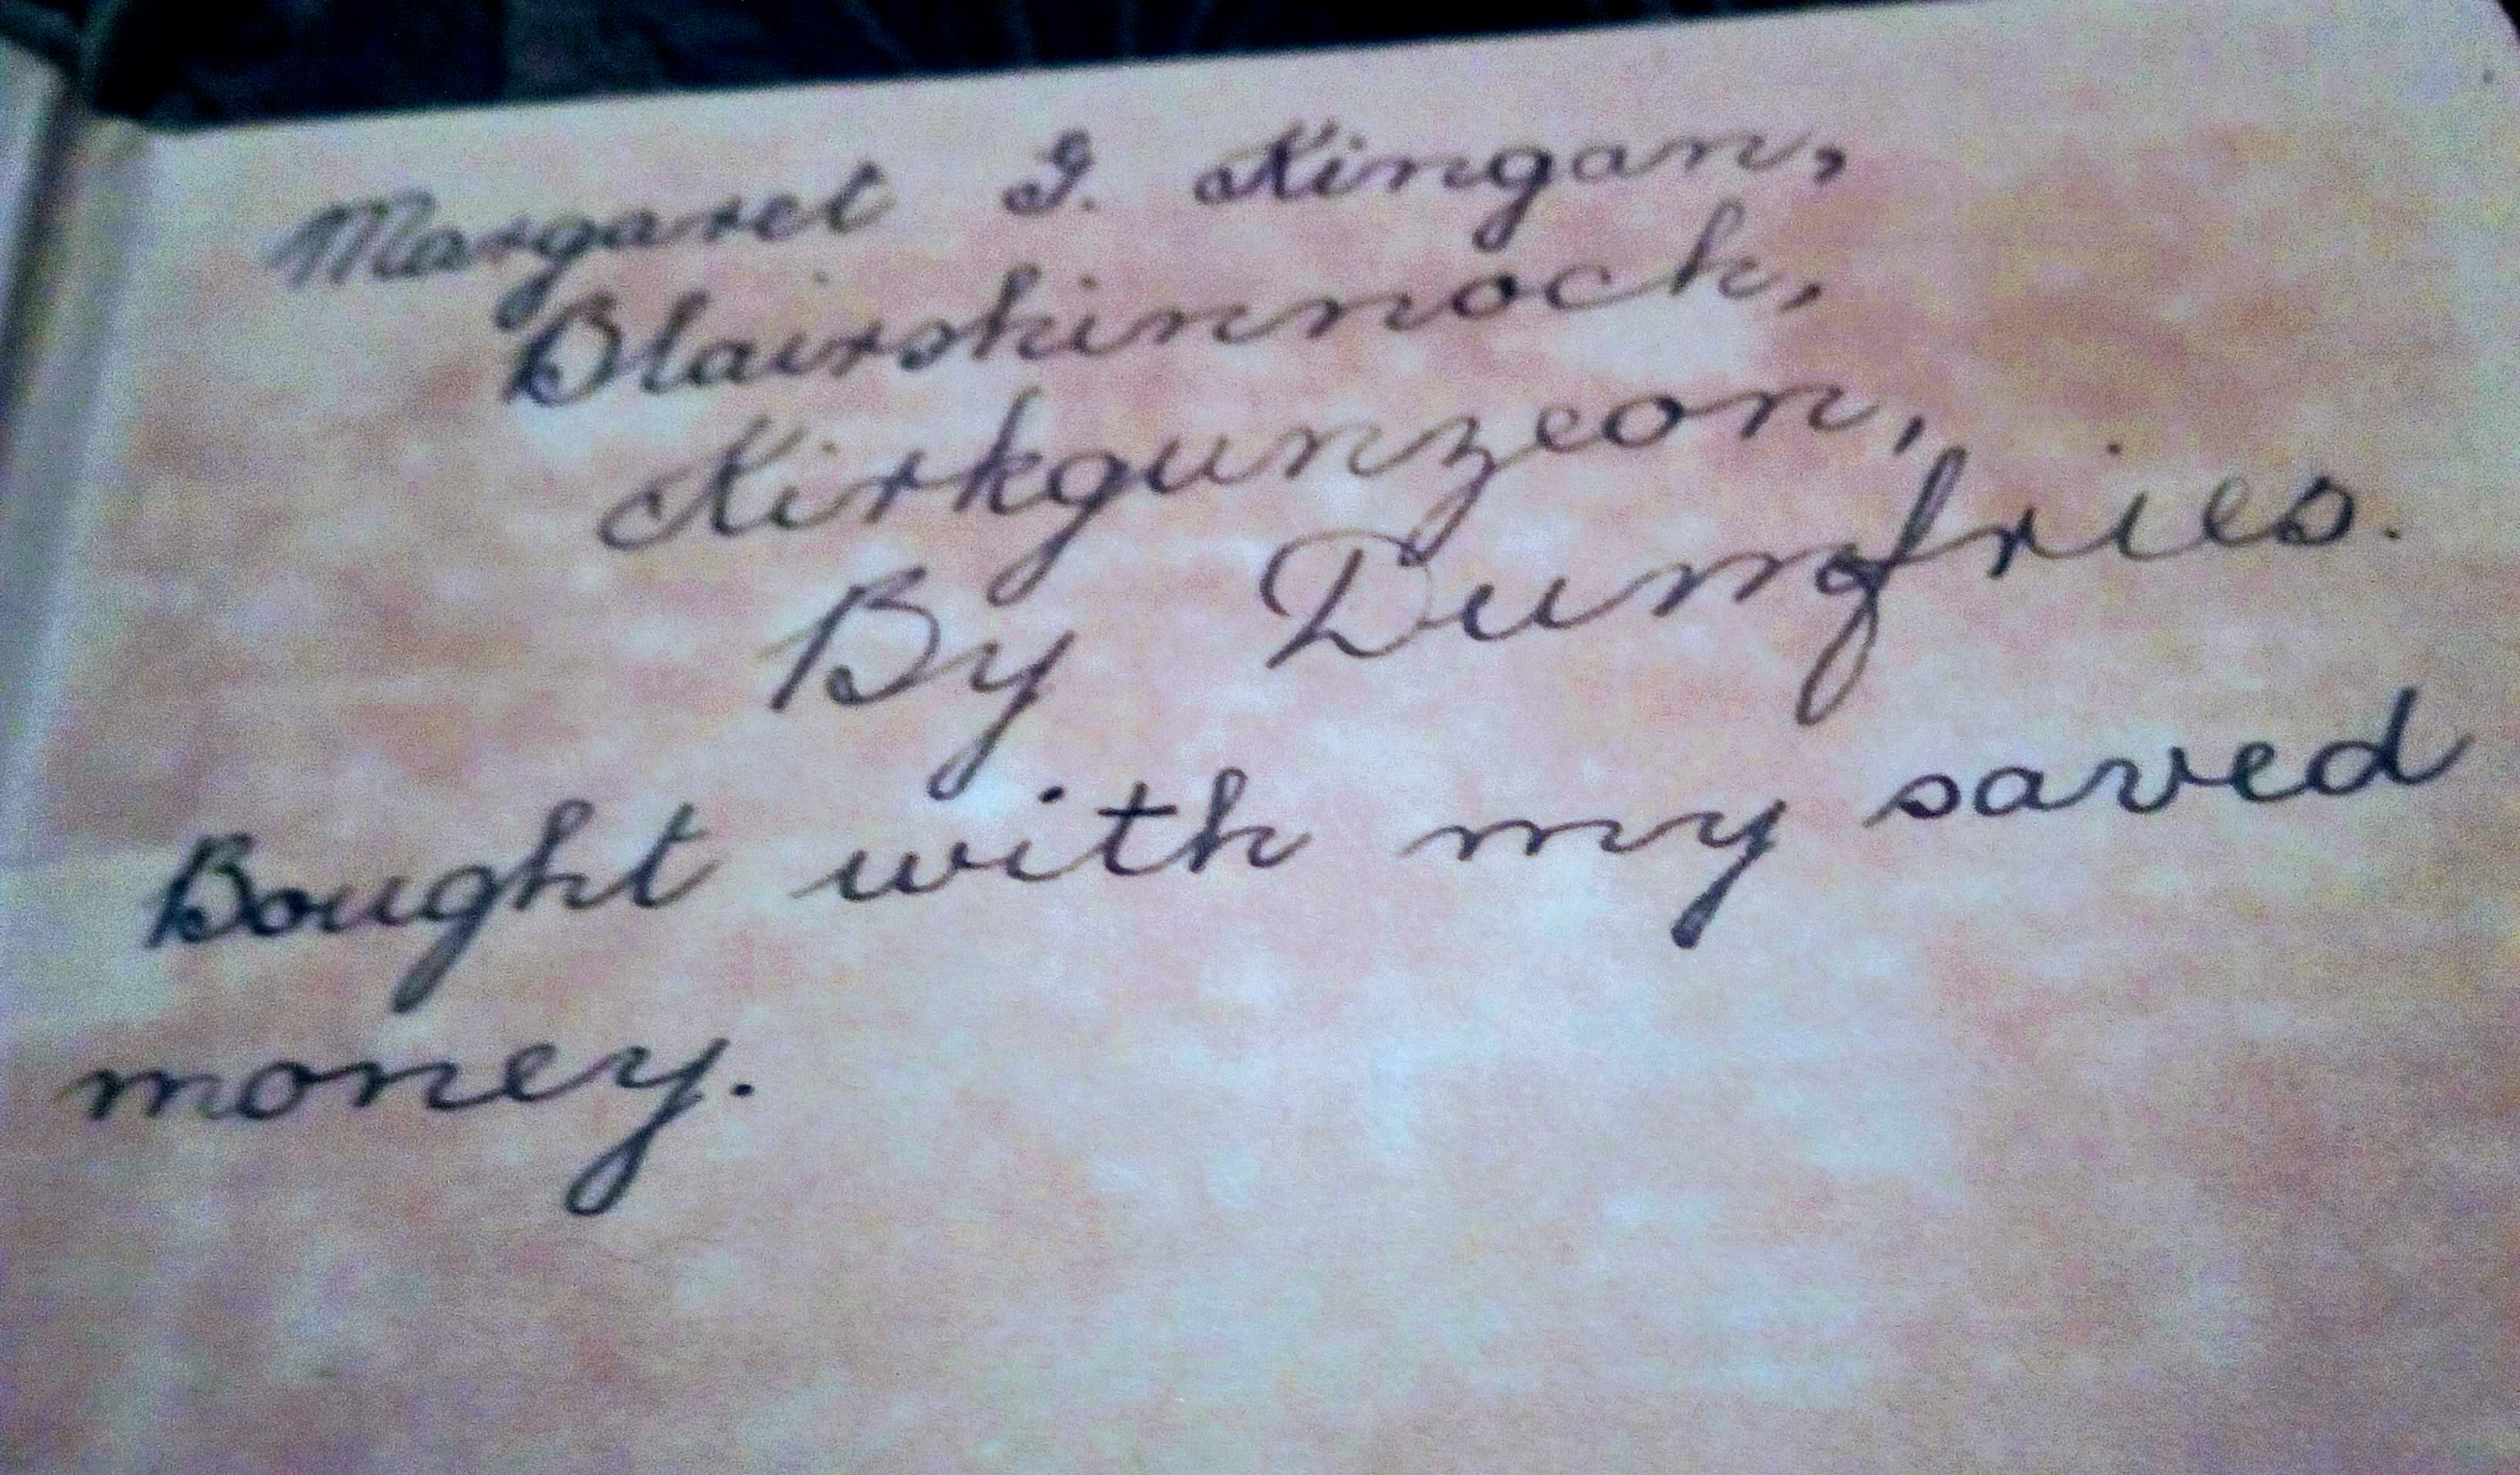 Margaret I. Kingan,
Blairshinnoch,
Kirkgunzeon,
By Dumfries.
Bought with my saved
money.